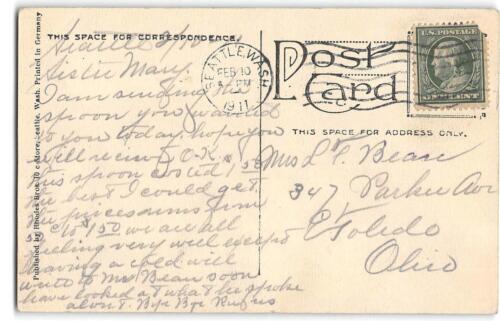 THIS SPACE FOR CORRESPONDENCE.
Seattle 2/10
Sister Mary.
I am sending
spoon you wanted
to you today. hope you
will receive O.K.
this spoon cost 1.50
the best I could get
the prices runs from
to $1.50 we are all
feeling very well except
having a cold will
write to Mr Bean soon
have looked at what he spoke
about. Bye Bye Rufus
Published by Rhodes Bros. 10 c Store, Seattle, Wash. Printed in Germany
SEATTLE, WASH.
FEB 10
PM
1911
Post
Card
U.S. POSTAGE
THIS SPACE FOR ADDRESS ONLY.
Mrs L F. Bean
347 Parker Ave
E Toledo
Ohio